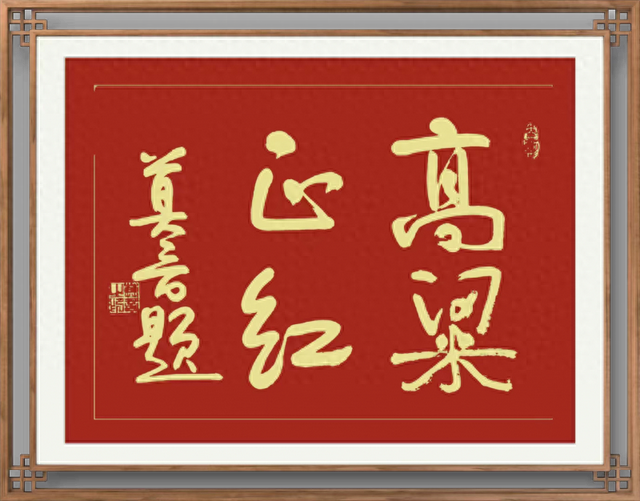 高粱
正红
莫言题